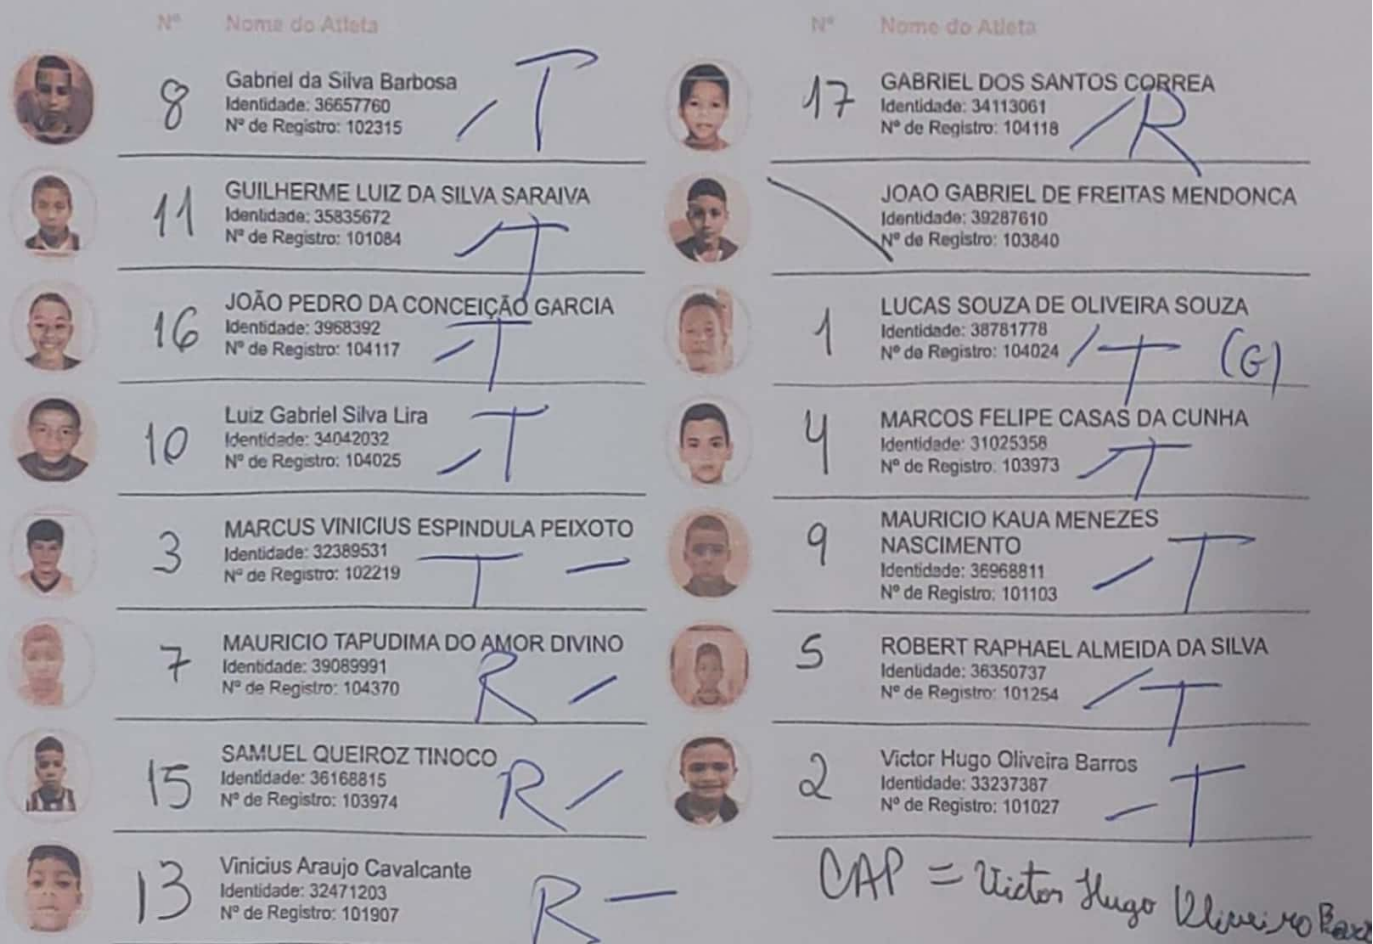 Nº Nome do Atleta
8 Gabriel da Silva Barbosa
Identidade: 36657760
Nº de Registro: 102315
/ T
11 GUILHERME LUIZ DA SILVA SARAIVA
Identidade: 35835672
Nº de Registro: 101084
/ T
16 JOÃO PEDRO DA CONCEIÇÃO GARCIA
Identidade: 3968392
Nº de Registro: 104117
/ T
10 Luiz Gabriel Silva Lira
Identidade: 34042032
Nº de Registro: 104025
/ T
3 MARCUS VINICIUS ESPINDULA PEIXOTO
Identidade: 32389531
Nº de Registro: 102219
T -
7 MAURICIO TAPUDIMA DO AMOR DIVINO
Identidade: 39089991
Nº de Registro: 104370
R -
15 SAMUEL QUEIROZ TINOCO
Identidade: 36168815
Nº de Registro: 103974
R /
13 Vinicius Araujo Cavalcante
Identidade: 32471203
Nº de Registro: 101907
R -
Nº Nome do Atleta
17 GABRIEL DOS SANTOS CORREA
Identidade: 34113061
Nº de Registro: 104118
/ R
JOAO GABRIEL DE FREITAS MENDONCA
Identidade: 39287610
Nº de Registro: 103840
1 LUCAS SOUZA DE OLIVEIRA SOUZA
Identidade: 38781778
Nº de Registro: 104024
/ T (G)
4 MARCOS FELIPE CASAS DA CUNHA
Identidade: 31025358
Nº de Registro: 103973
/ T
9 MAURICIO KAUA MENEZES
NASCIMENTO
Identidade: 36968811
Nº de Registro: 101103
/ T
5 ROBERT RAPHAEL ALMEIDA DA SILVA
Identidade: 36350737
Nº de Registro: 101254
/ T
2 Victor Hugo Oliveira Barros
Identidade: 33237387
Nº de Registro: 101027
- T
CAP = Victor Hugo